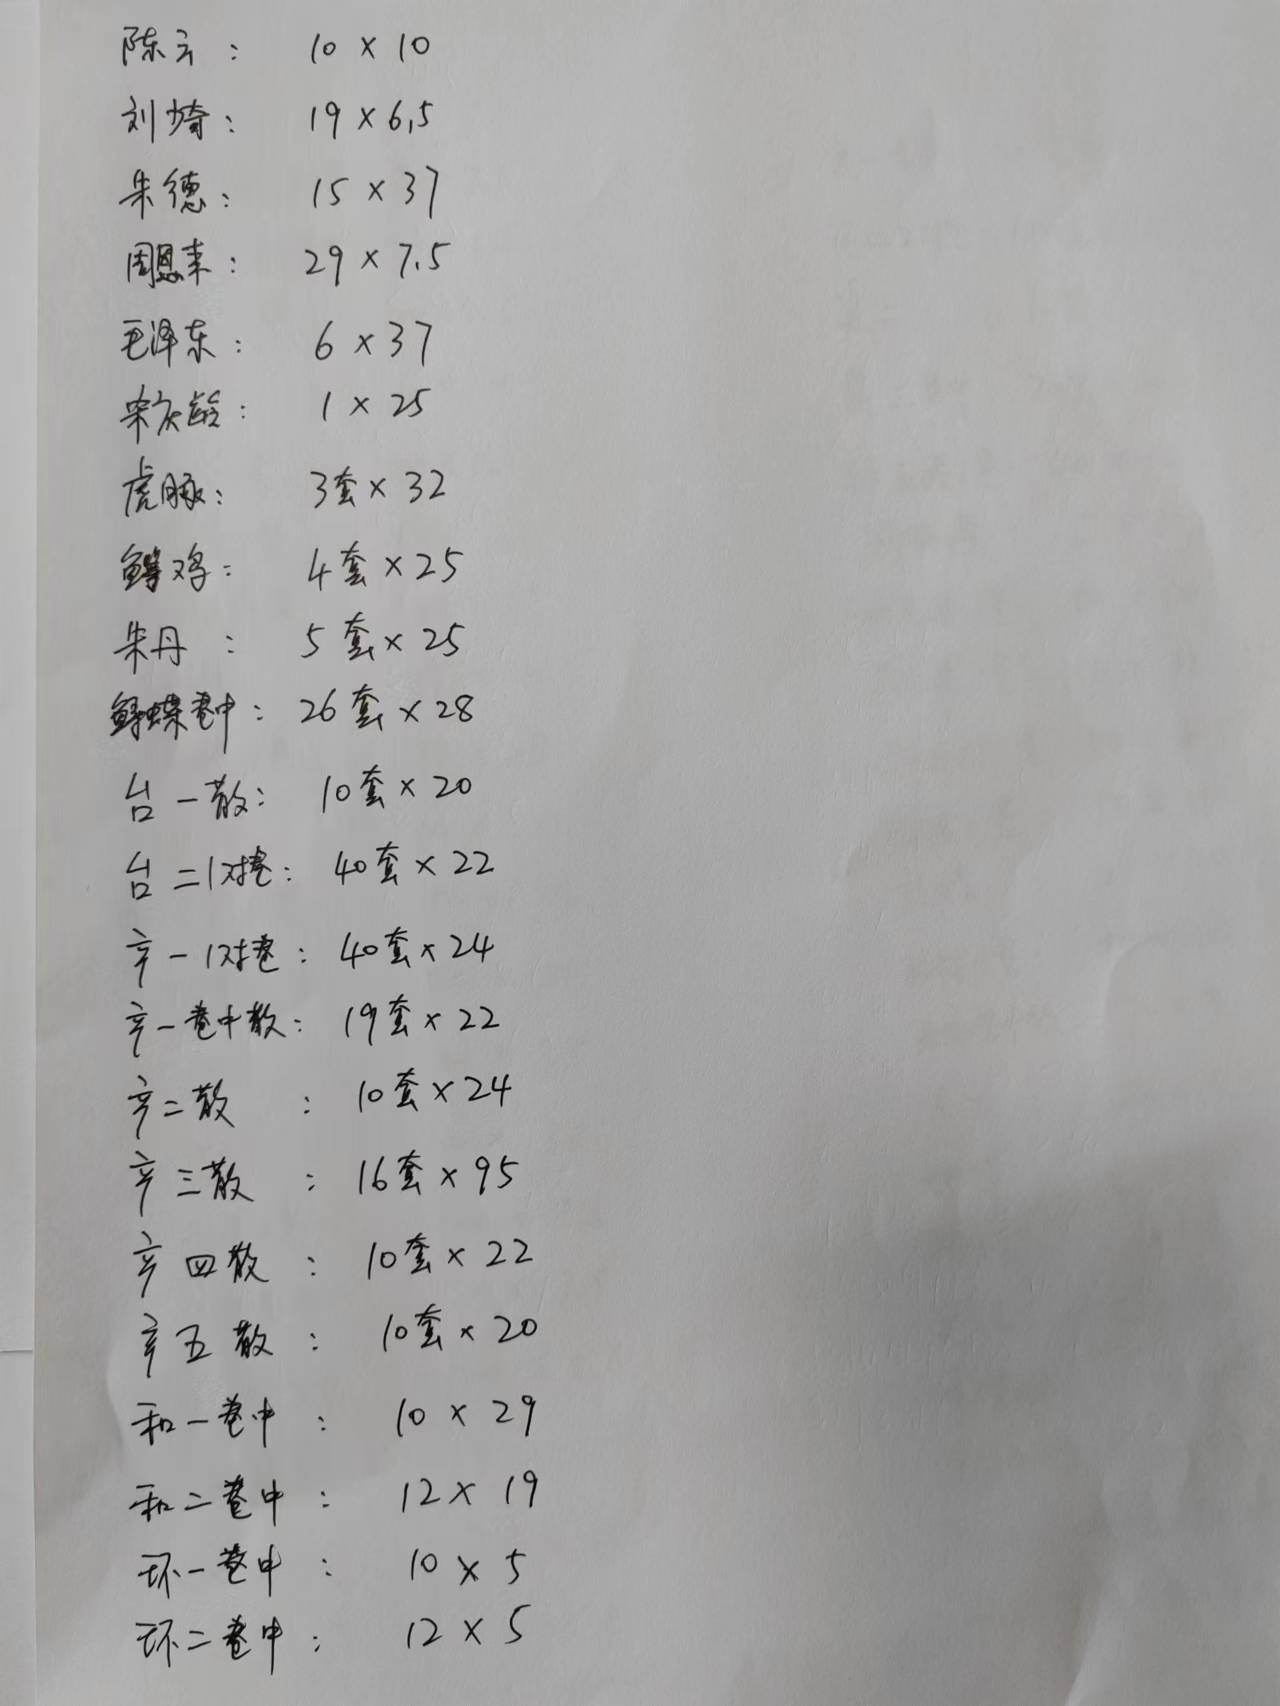 陈云： 10 × 10
刘少奇： 19 × 6.5
朱德： 15 × 37
周恩来： 29 × 7.5
毛泽东： 6 × 37
宋庆龄： 1 × 25
虎豚： 3套 × 32
鳟鸡： 4套 × 25
朱丹： 5套 × 25
蝴蝶卷中： 26套 × 28
台一散： 10套 × 20
台二1对卷： 40套 × 22
辛一1对卷： 40套 × 24
辛一卷中散： 19套 × 22
辛二散： 10套 × 24
辛三散： 16套 × 95
辛四散： 10套 × 22
辛五散： 10套 × 20
和一卷中： 10 × 29
和二卷中： 12 × 19
环一卷中： 10 × 5
环二卷中： 12 × 5